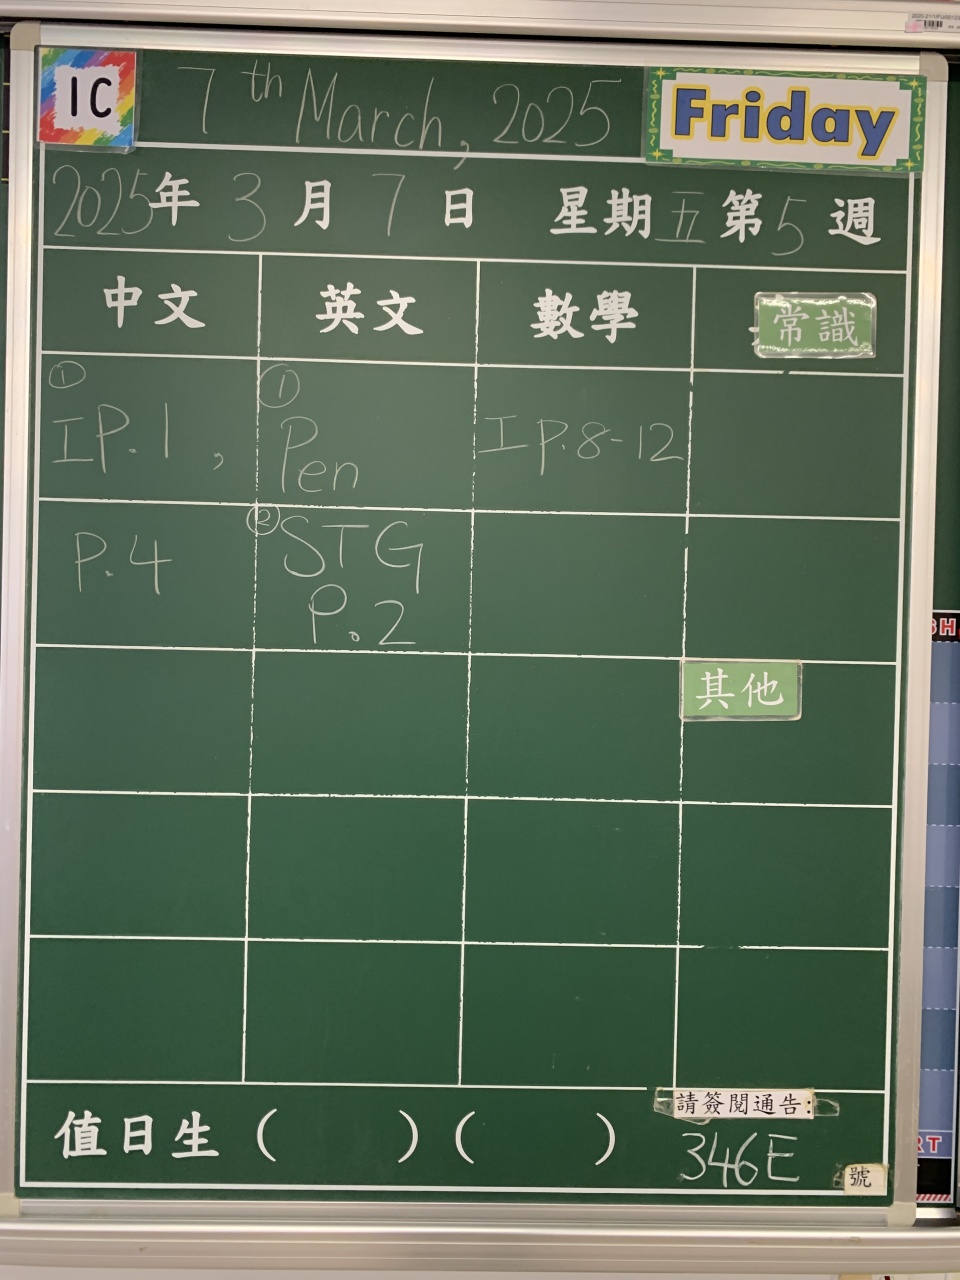 1C 7th March, 2025 Friday
2025年 3月 7日 星期五 第5週
中文 英文 數學 常識
① ①
IP.1, Pen IP.8-12
② STG
P.4 P.2
其他
值日生 ( ) ( )
請簽閱通告:
346E 號